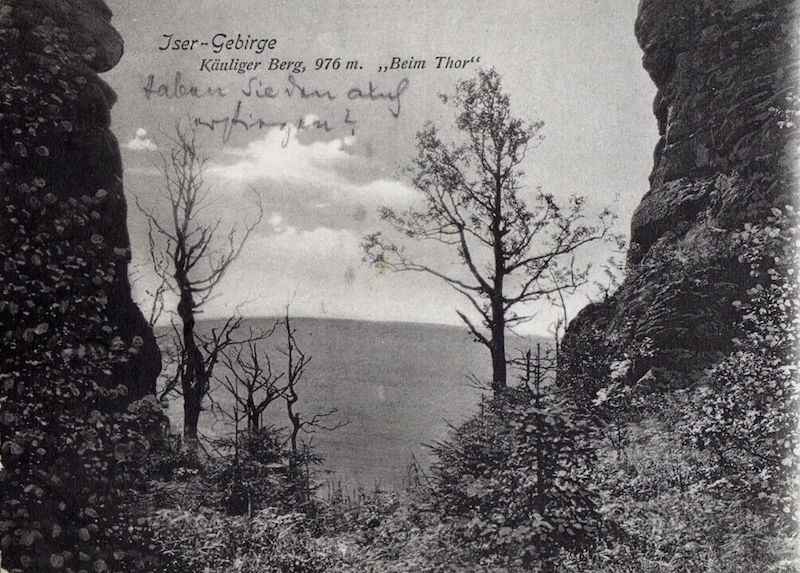 Iser-Gebirge
Käuliger Berg, 976 m. „Beim Thor“
Haben Sie den auch
erstiegen?